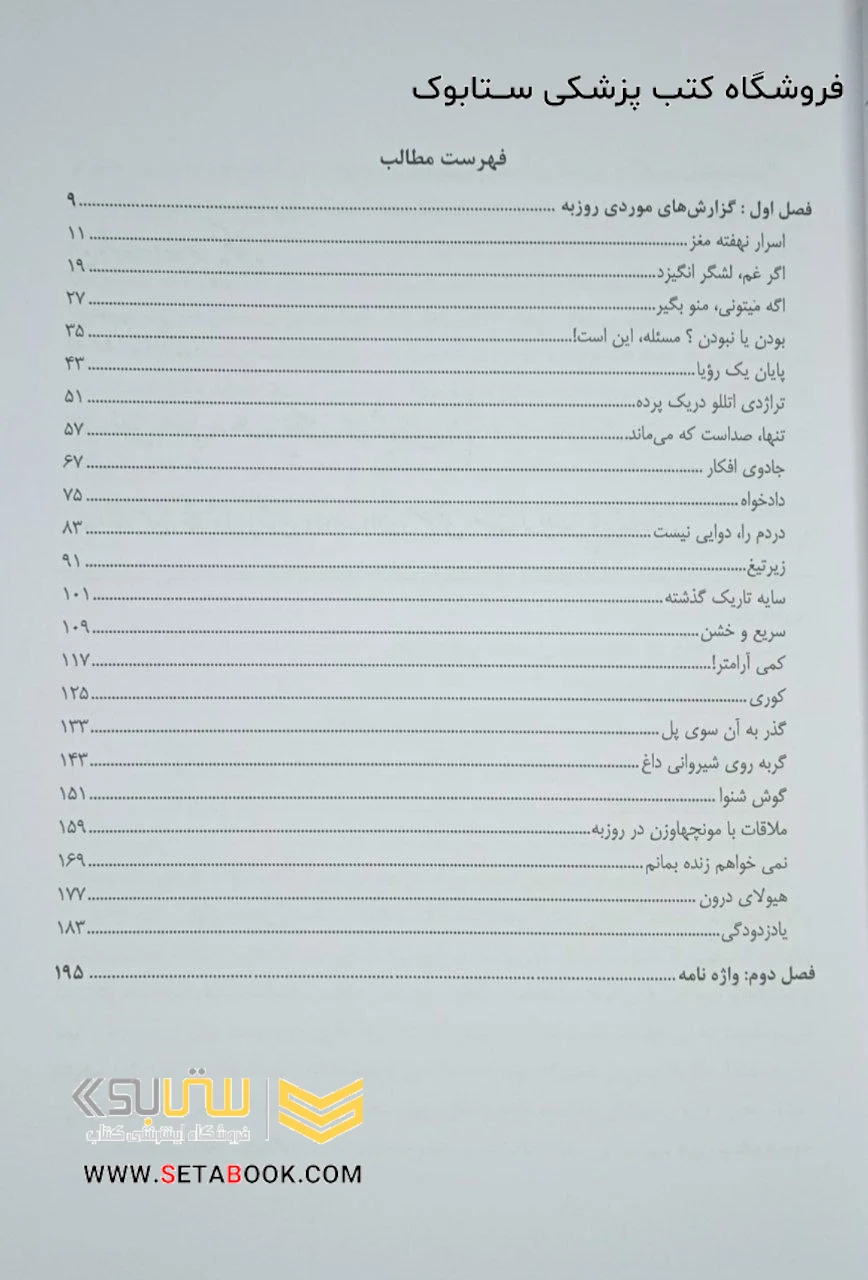 فروشگاه کتب پزشکی ستابوک
فهرست مطالب
فصل اول : گزارش‌های موردی روزبه ........ ۹
اسرار نهفته مغز ........ ۱۱
اگر غم، لشگر انگیزد ........ ۱۹
اگه میتونی، منو بگیر ........ ۲۷
بودن یا نبودن ؟ مسئله، این است! ........ ۳۵
پایان یک رؤیا ........ ۴۳
تراژدی اتللو دریک پرده ........ ۵۱
تنها، صداست که می‌ماند ........ ۵۷
جادوی افکار ........ ۶۷
دادخواه ........ ۷۵
دردم را، دوایی نیست ........ ۸۳
زیرتیغ ........ ۹۱
سایه تاریک گذشته ........ ۱۰۱
سریع و خشن ........ ۱۰۹
کمی آرامتر! ........ ۱۱۷
کوری ........ ۱۲۵
گذر به آن سوی پل ........ ۱۳۳
گربه روی شیروانی داغ ........ ۱۴۳
گوش شنوا ........ ۱۵۱
ملاقات با مونچهاوزن در روزبه ........ ۱۵۹
نمی خواهم زنده بمانم ........ ۱۶۹
هیولای درون ........ ۱۷۷
یادزدودگی ........ ۱۸۳
فصل دوم: واژه نامه ........ ۱۹۵
ستابوک
فروشگاه اینترنتی کتاب
WWW.SETABOOK.COM